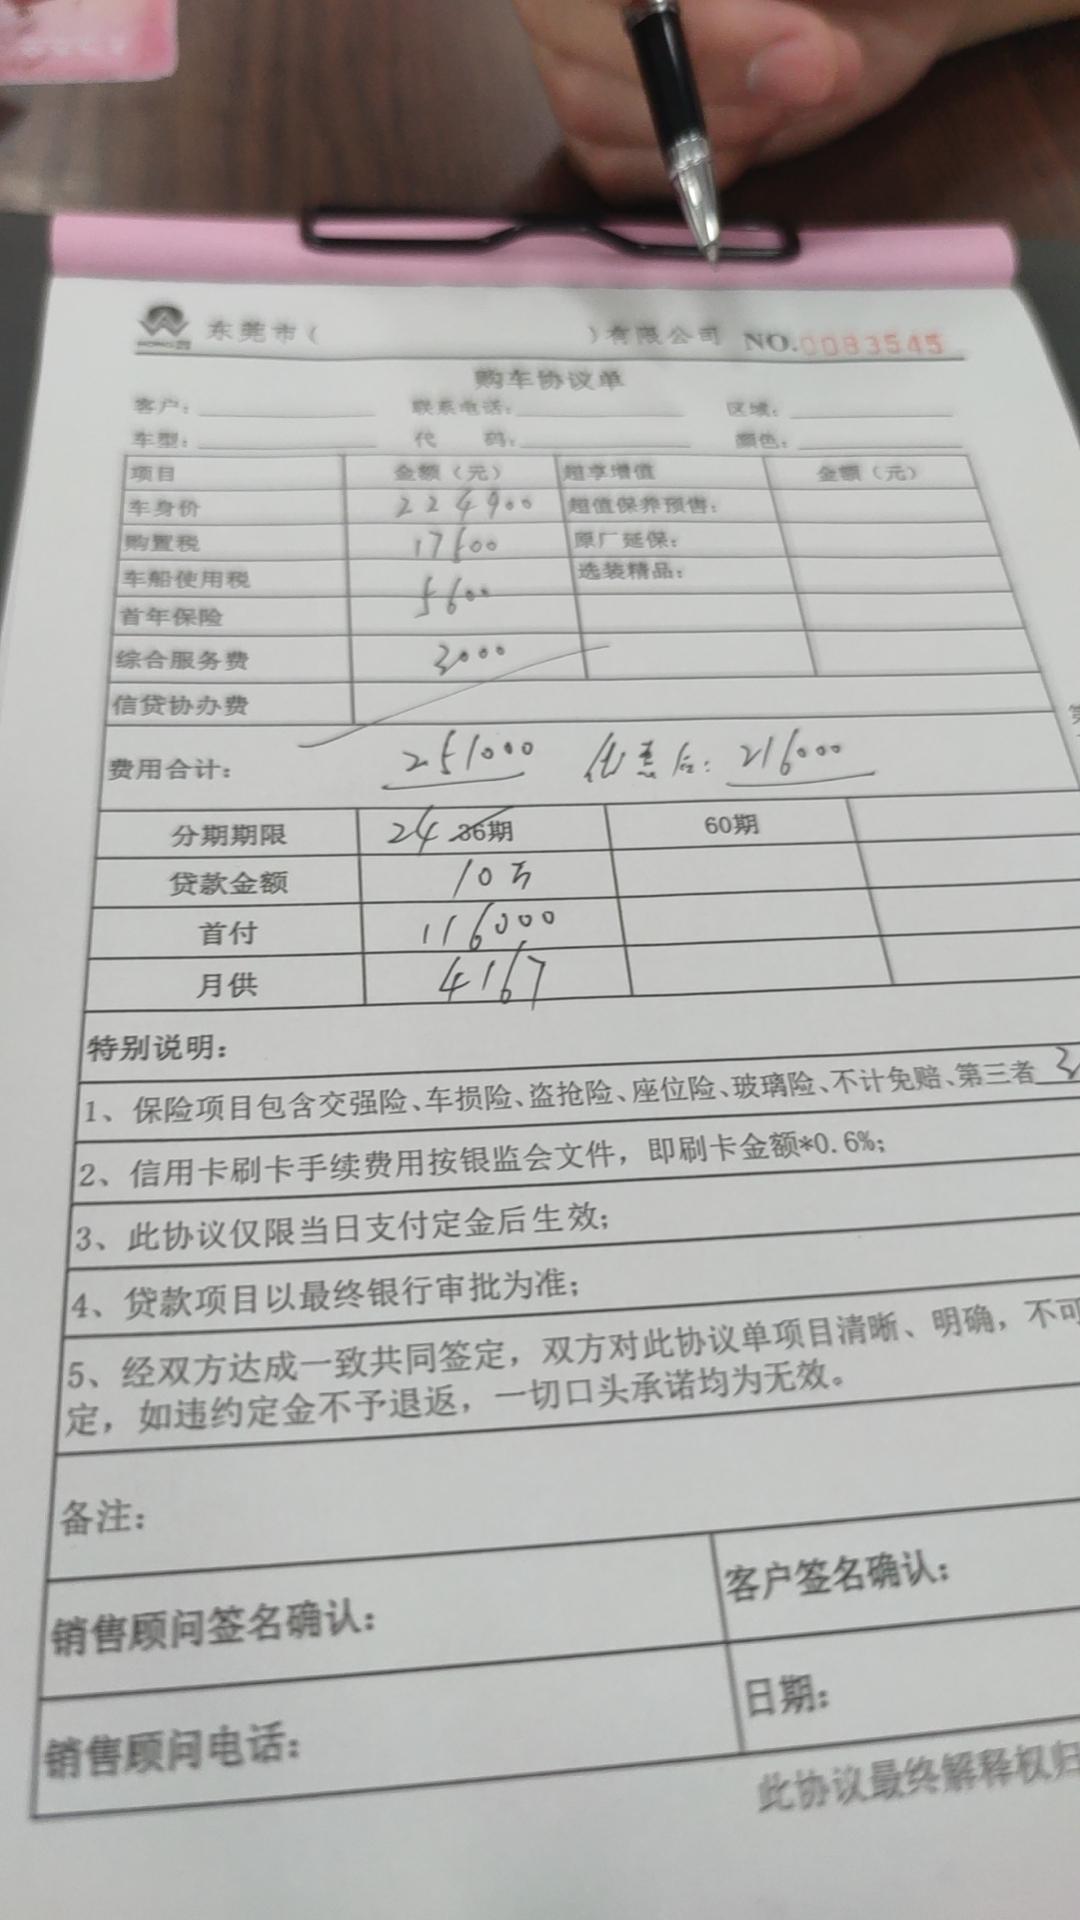 东莞市( )有限公司 NO.0083545
购车协议单
客户: 联系电话: 区域:
车型: 代 码: 颜色:
项目 金额(元) 超享增值 金额(元)
车身价 224900 超值保养预售:
购置税 17500 原厂延保:
车船使用税 5600 选装精品:
首年保险
综合服务费 3000
信贷协办费
费用合计: 251000 优惠后: 216000
分期期限 24 36期 60期
贷款金额 10万
首付 116000
月供 4167
特别说明:
1、保险项目包含交强险、车损险、盗抢险、座位险、玻璃险、不计免赔、第三者
2、信用卡刷卡手续费用按银监会文件，即刷卡金额*0.6%;
3、此协议仅限当日支付定金后生效;
4、贷款项目以最终银行审批为准;
5、经双方达成一致共同签定，双方对此协议单项目清晰、明确，不可
定，如违约定金不予退返，一切口头承诺均为无效。
备注:
销售顾问签名确认: 客户签名确认:
销售顾问电话: 日期:
此协议最终解释权归